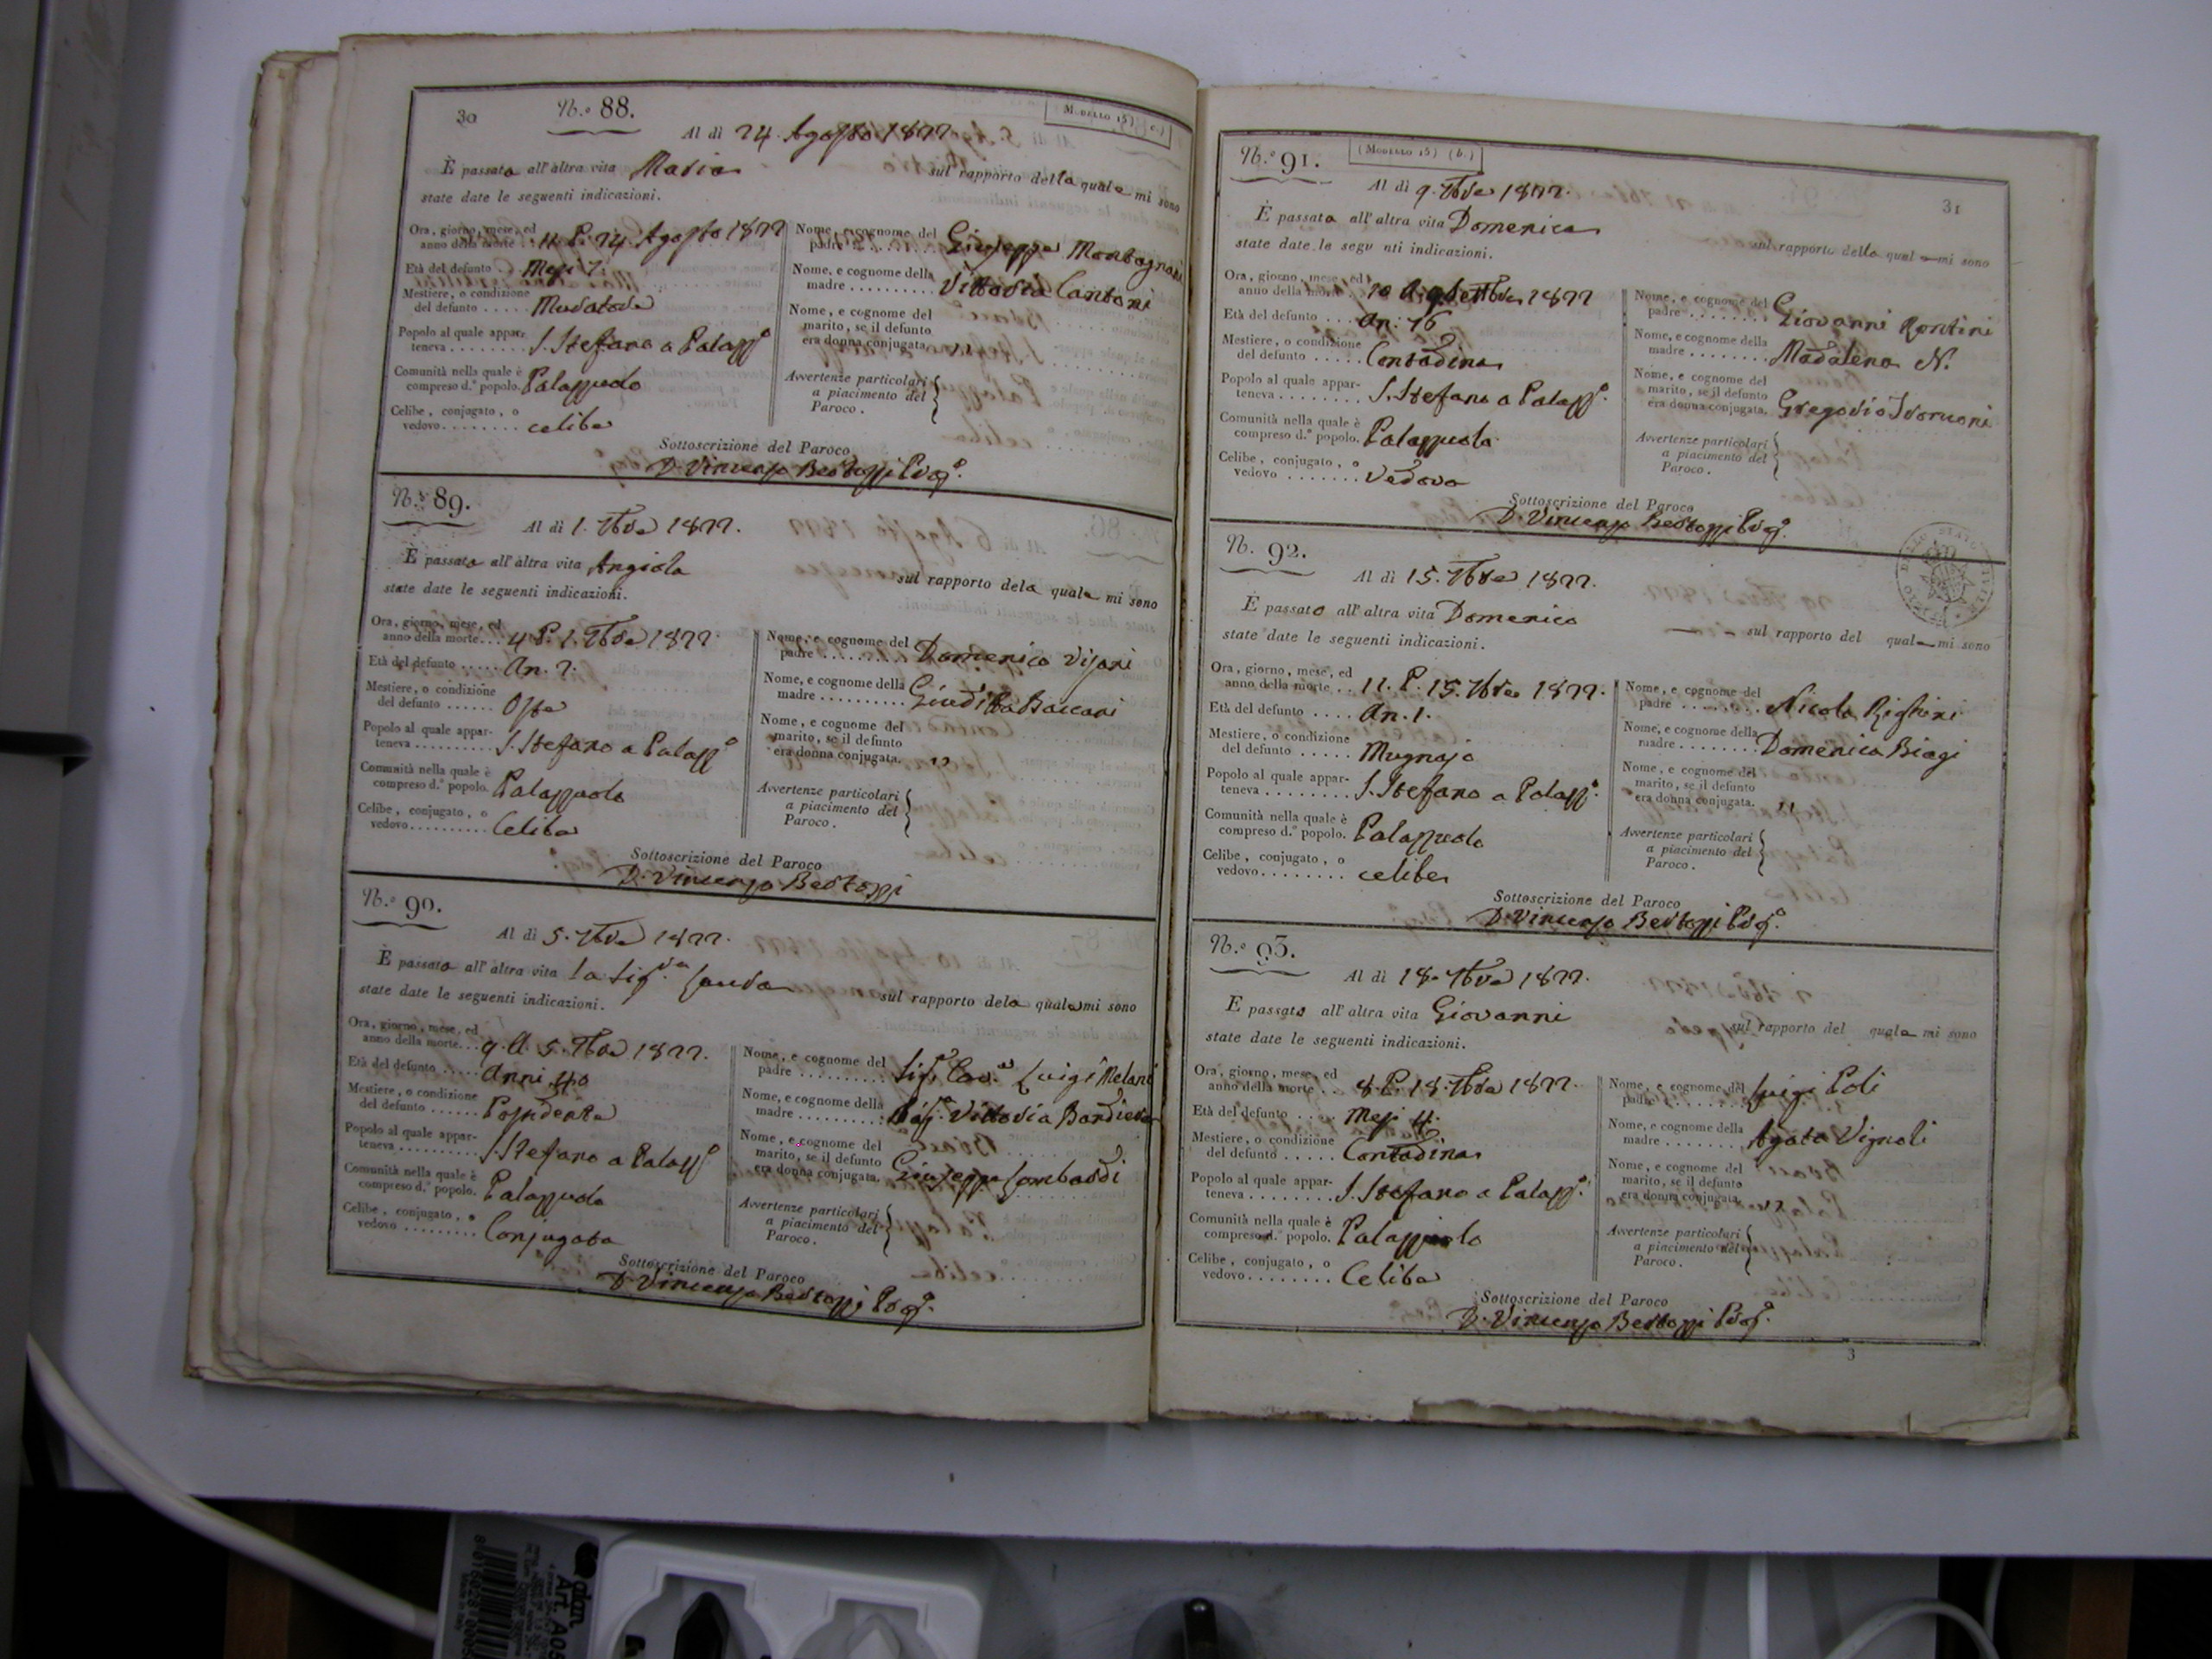 30
N.º 88.
Modello 15)
Al dì 24. Agosto 1822
È passata all'altra vita Maria sul rapporto della quale mi sono
state date le seguenti indicazioni.
Ora, giorno, mese, ed
anno della morte . 11 P. 24 Agosto 1822
Età del defunto . Mesi 7.
Mestiere, o condizione
del defunto ..... Muratore
Popolo al quale appar-
teneva ........ S. Stefano a Palazz.º
Comunità nella quale è
compreso d.º popolo. Palazzuolo
Celibe, conjugato, o
vedovo ........ celibe
Nome, e cognome del
padre ........ Giuseppe Montagnani
Nome, e cognome della
madre .......... Vittoria Cantoni
Nome, e cognome del
marito, se il defunto
era donna conjugata. ,,
Avvertenze particolari
a piacimento del
Paroco.
Sottoscrizione del Paroco
D. Vincenzo Bertozzi
N.º 89.
Al dì 1. 7bre 1822.
È passata all'altra vita Angiola sul rapporto dela quale mi sono
state date le seguenti indicazioni.
Ora, giorno, mese, ed
anno della morte... 4 P. 1. 7bre 1822
Età del defunto ..... An. 2.
Mestiere, o condizione
del defunto ...... Oste
Popolo al quale appar-
teneva .......... S. Stefano a Palazz.º
Comunità nella quale è
compreso d.º popolo. Palazzuolo
Celibe, conjugato, o
vedovo .......... Celibe
Nome, e cognome del
padre .......... Domenico Visani
Nome, e cognome della
madre .......... Giuditta Baccari
Nome, e cognome del
marito, se il defunto
era donna conjugata. ,,
Avvertenze particolari
a piacimento del
Paroco.
Sottoscrizione del Paroco
D. Vincenzo Bertozzi
N.º 90.
Al dì 5. 7bre 1822.
È passata all'altra vita la Sig.ra sul rapporto dela quale mi sono
state date le seguenti indicazioni.
Ora, giorno, mese, ed
anno della morte... 9. A. 5. 7bre 1822.
Età del defunto ..... Anni 40
Mestiere, o condizione
del defunto ...... Possidente
Popolo al quale appar-
teneva .......... S. Stefano a Palazz.º
Comunità nella quale è
compreso d.º popolo. Palazzuolo
Celibe, conjugato, o
vedovo ......... Conjugata
Nome, e cognome del
padre .......... Sig. Cav.e Luigi Melani
Nome, e cognome della
madre .......... Vittoria
Nome, e cognome del
marito, se il defunto
era donna conjugata. Giuseppe Lombardi
Avvertenze particolari
a piacimento del
Paroco.
Sottoscrizione del Paroco
D. Vincenzo Bertozzi
N.º 91.
(Modello 15) (b.)
31
Al dì 9. 7bre 1822.
È passata all'altra vita Domenica sul rapporto della quale mi sono
state date le segu nti indicazioni.
Ora, giorno, mese, ed
anno della morte . 10 A. 9 Settbre 1822
Età del defunto ... An: 76
Mestiere, o condizione
del defunto ..... Contadina
Popolo al quale appar-
teneva ........ S. Stefano a Palazz.º
Comunità nella quale è
compreso d.º popolo. Palazzuolo
Celibe, conjugato, o
vedovo ....... Vedova
Nome, e cognome del
padre ........ Giovanni Rontini
Nome, e cognome della
madre ........ Madalena N.
Nome, e cognome del
marito, se il defunto
era donna conjugata. Gregorio
Avvertenze particolari
a piacimento del
Paroco.
Sottoscrizione del Paroco
D. Vincenzo Bertozzi
N. 92.
Al dì 15. 7bre 1822.
È passato all'altra vita Domenico sul rapporto del quale mi sono
state date le seguenti indicazioni.
Ora, giorno, mese, ed
anno della morte .. 11. P. 15. 7bre 1822.
Età del defunto .... An. 1.
Mestiere, o condizione
del defunto ..... Mugnajo
Popolo al quale appar-
teneva ........ S. Stefano a Palazz.º
Comunità nella quale è
compreso d.º popolo. Palazzuolo
Celibe, conjugato, o
vedovo ........ celibe
Nome, e cognome del
padre ........ Nicola Righini
Nome, e cognome della
madre ........ Domenica Biagi
Nome, e cognome del
marito, se il defunto
era donna conjugata. ,,
Avvertenze particolari
a piacimento del
Paroco.
Sottoscrizione del Paroco
D. Vincenzo Bertozzi
N.º 93.
Al dì 18. 7bre 1822.
È passato all'altra vita Giovanni sul rapporto del quale mi sono
state date le seguenti indicazioni.
Ora, giorno, mese, ed
anno della morte .. 8. P. 18. 7bre 1822.
Età del defunto .... Mesi 4.
Mestiere, o condizione
del defunto ..... Contadina
Popolo al quale appar-
teneva ........ S. Stefano a Palazz.º
Comunità nella quale è
compreso d.º popolo. Palazzuolo
Celibe, conjugato, o
vedovo ........ Celibe
Nome, e cognome del
padre ........ Luigi Poli
Nome, e cognome della
madre ........ Agata Vignoli
Nome, e cognome del
marito, se il defunto
era donna conjugata.
Avvertenze particolari
a piacimento del
Paroco.
Sottoscrizione del Paroco
D. Vincenzo Bertozzi
3